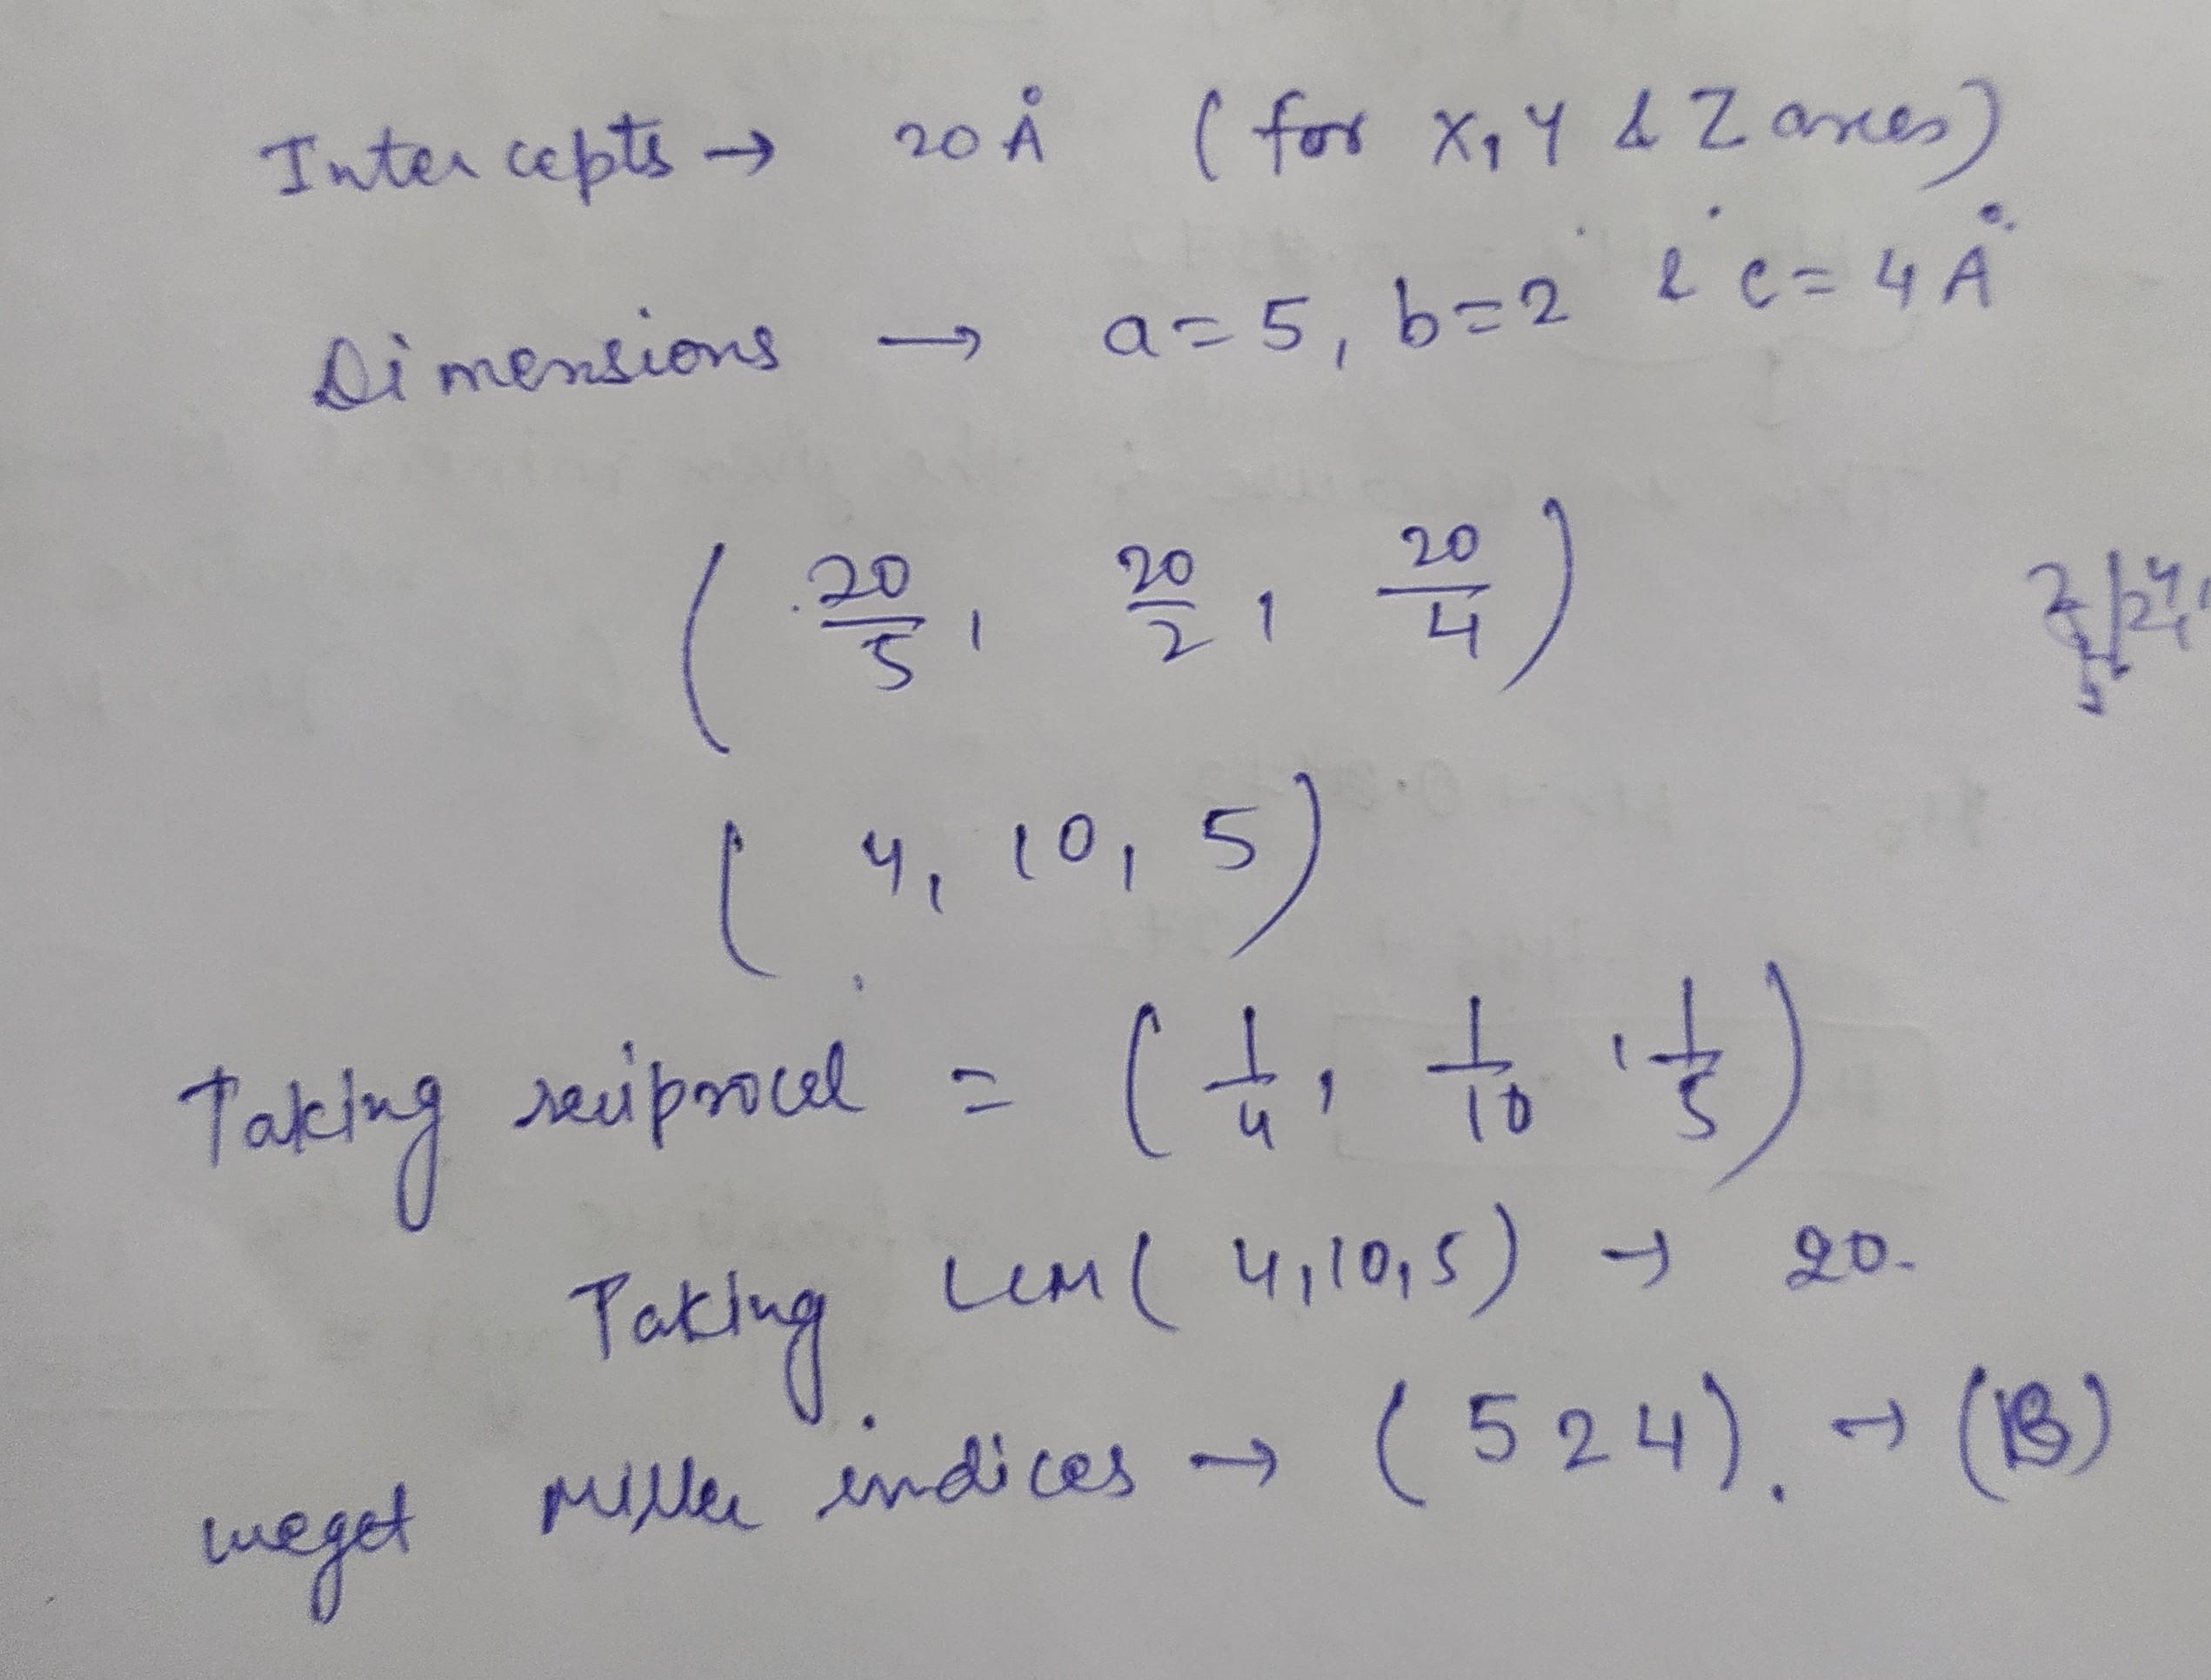 Intercepts → 20 Å (for X, Y & Z axes)
Dimensions → a = 5, b = 2 & c = 4 Å
(20/5, 20/2, 20/4)
(4, 10, 5)
Taking reciprocal = (1/4, 1/10, 1/5)
Taking LCM (4,10,5) → 20.
we get Miller indices → (5 2 4). → (B)